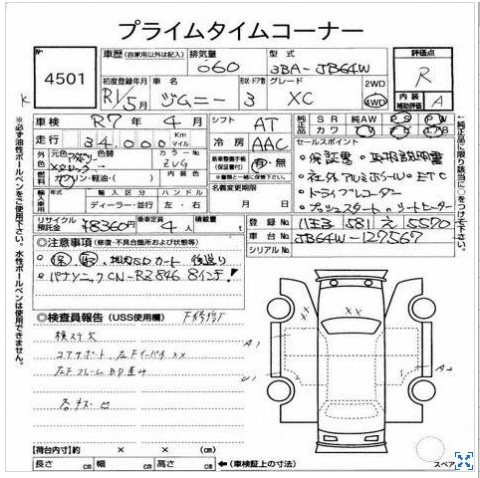 プライムタイムコーナー
No.
4501
車歴 (自家用以外は記入)
排気量
型式
評価点
060
3BA-JB64W
R
初度登録年月
車名
形状・ドア数
グレード
2WD
4WD
内装補助評価
A
R1/5月
ジムニー
3
XC
車検
R7年4月
シフト
AT
SR 純AW PS PW
カワ
走行
34,000
Km
マイル
冷房
AAC
セールスポイント
・保証書 ・取扱説明書
・社外アルミホイール・ETC
・ドライブレコーダー
・プッシュスタート・シートヒーター
外色
元色
色替
カラーNo.
ZVG
有・無
燃料
ガソリン・軽油・( )
内装色
名義変更期限
月 日
輸入車用
年式
輸入区分
ハンドル
年
ディーラー・並行
左・右
リサイクル預託金
¥8360円
乗車定員
4人
積載量
t
登録No.
八王子 581 え 5570
車台No.
JB64W-127567
シリアルNo.
◎注意事項(修復・不具合箇所および状態等)
SDカード 後送り
パナソニックCN-RZ846 8インチ!
◎検査員報告(USS使用欄)
コアサポート
XX
XX
A1
U1
A2
【荷台内寸】約 × × (cm)
長さ cm 幅 cm 高さ cm
←(車検証上の寸法)
スペア
※必ず油性ボールペンをご使用下さい。水性ボールペンは使用できません。
純正品に限り該当に○をつけて下さい。